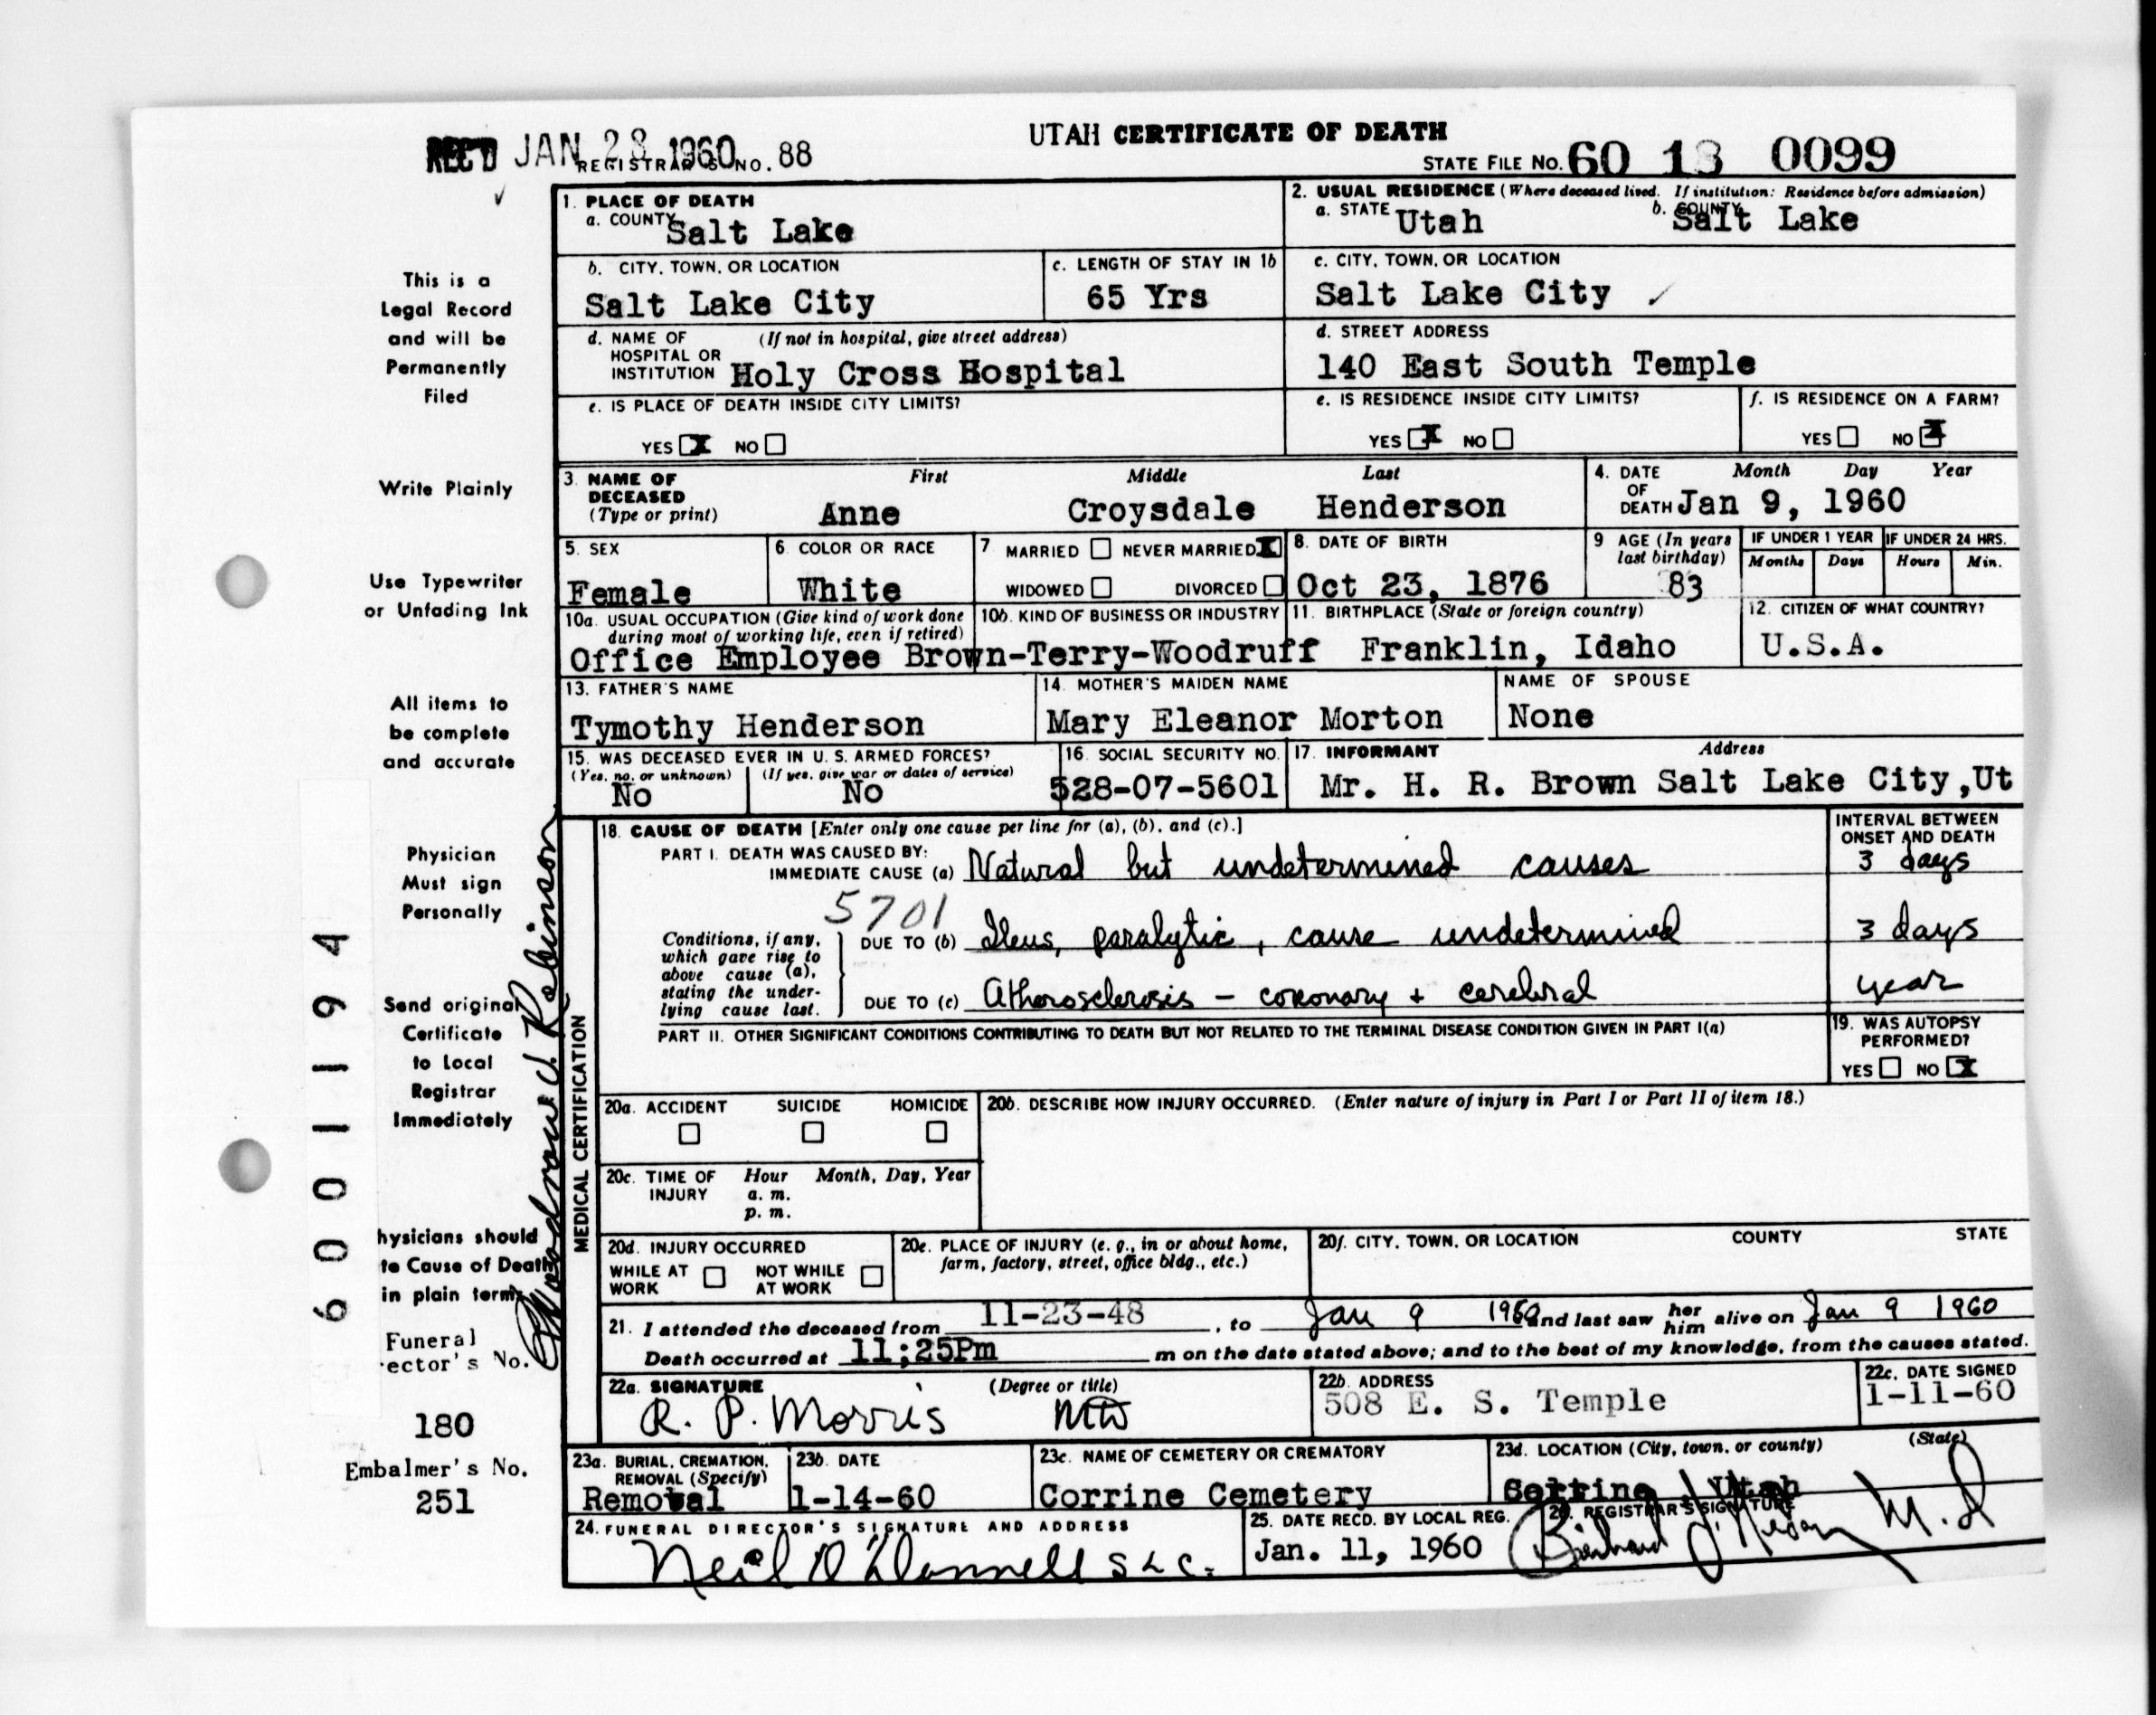 UTAH CERTIFICATE OF DEATH
REC'D JAN 28 1960 REGISTRAR'S NO. 88
STATE FILE NO. 60 18 0099
1. PLACE OF DEATH
a. COUNTY Salt Lake
2. USUAL RESIDENCE (Where deceased lived. If institution: Residence before admission)
a. STATE Utah b. COUNTY Salt Lake
b. CITY, TOWN, OR LOCATION
Salt Lake City
c. LENGTH OF STAY IN 1b
65 Yrs
c. CITY, TOWN, OR LOCATION
Salt Lake City
d. NAME OF HOSPITAL OR INSTITUTION (If not in hospital, give street address)
Holy Cross Hospital
d. STREET ADDRESS
140 East South Temple
e. IS PLACE OF DEATH INSIDE CITY LIMITS?
YES X NO
e. IS RESIDENCE INSIDE CITY LIMITS?
YES X NO
f. IS RESIDENCE ON A FARM?
YES NO X
3. NAME OF DECEASED (Type or print) First Middle Last
Anne Croysdale Henderson
4. DATE OF DEATH Month Day Year
Jan 9, 1960
5. SEX
Female
6. COLOR OR RACE
White
7. MARRIED NEVER MARRIED X
WIDOWED DIVORCED
8. DATE OF BIRTH
Oct 23, 1876
9. AGE (In years last birthday)
83
IF UNDER 1 YEAR
Months Days
IF UNDER 24 HRS.
Hours Min.
10a. USUAL OCCUPATION (Give kind of work done during most of working life, even if retired)
Office Employee
10b. KIND OF BUSINESS OR INDUSTRY
Brown-Terry-Woodruff
11. BIRTHPLACE (State or foreign country)
Franklin, Idaho
12. CITIZEN OF WHAT COUNTRY?
U.S.A.
13. FATHER'S NAME
Tymothy Henderson
14. MOTHER'S MAIDEN NAME
Mary Eleanor Morton
NAME OF SPOUSE
None
15. WAS DECEASED EVER IN U. S. ARMED FORCES?
(Yes, no, or unknown) (If yes, give war or dates of service)
No No
16. SOCIAL SECURITY NO.
528-07-5601
17. INFORMANT Address
Mr. H. R. Brown Salt Lake City,Ut
MEDICAL CERTIFICATION
18. CAUSE OF DEATH [Enter only one cause per line for (a), (b), and (c).]
INTERVAL BETWEEN ONSET AND DEATH
PART I. DEATH WAS CAUSED BY:
IMMEDIATE CAUSE (a) Natural but undetermined causes 3 days
5701
Conditions, if any, which gave rise to above cause (a), stating the underlying cause last.
DUE TO (b) Ileus, paralytic, cause undetermined 3 days
DUE TO (c) Atherosclerosis - coronary + cerebral year
PART II. OTHER SIGNIFICANT CONDITIONS CONTRIBUTING TO DEATH BUT NOT RELATED TO THE TERMINAL DISEASE CONDITION GIVEN IN PART I(a)
19. WAS AUTOPSY PERFORMED?
YES NO X
20a. ACCIDENT SUICIDE HOMICIDE
20b. DESCRIBE HOW INJURY OCCURRED. (Enter nature of injury in Part I or Part II of item 18.)
20c. TIME OF INJURY Hour Month, Day, Year
a. m.
p. m.
20d. INJURY OCCURRED
WHILE AT WORK NOT WHILE AT WORK
20e. PLACE OF INJURY (e. g., in or about home, farm, factory, street, office bldg., etc.)
20f. CITY, TOWN, OR LOCATION COUNTY STATE
21. I attended the deceased from 11-23-48, to Jan 9 1960 and last saw her him alive on Jan 9 1960
Death occurred at 11;25Pm m on the date stated above; and to the best of my knowledge, from the causes stated.
22a. SIGNATURE (Degree or title)
R. P. Morris MD
22b. ADDRESS
508 E. S. Temple
22c. DATE SIGNED
1-11-60
23a. BURIAL, CREMATION, REMOVAL (Specify)
Removal
23b. DATE
1-14-60
23c. NAME OF CEMETERY OR CREMATORY
Corrine Cemetery
23d. LOCATION (City, town, or county) (State)
Utah
24. FUNERAL DIRECTOR'S SIGNATURE AND ADDRESS
Neil O'Donnell SLC.
25. DATE RECD. BY LOCAL REG.
Jan. 11, 1960
26. REGISTRAR'S SIGNATURE
M.D
This is a
Legal Record
and will be
Permanently
Filed
Write Plainly
Use Typewriter
or Unfading Ink
All items to
be complete
and accurate
Physician
Must sign
Personally
Send original
Certificate
to Local
Registrar
Immediately
hysicians should
te Cause of Death
in plain terms
Funeral
ector's No.
180
Embalmer's No.
251
6001194
Woodrow J. Robinson